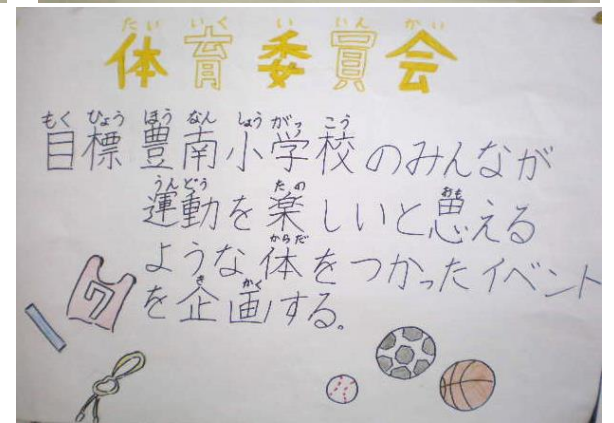 たいいくいいんかい
体育委員会
もくひょうほうなんしょうがっこう
目標豊南小学校のみんなが
うんどうたのおも
運動を楽しいと思える
からだ
ような体をつかったイベント
きかく
を企画する。
7